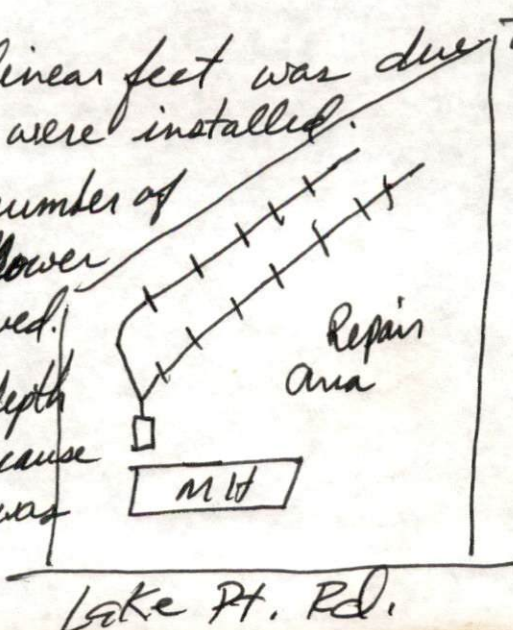 linear feet was due
were installed.
number of
lower
ved.
depth
cause
was
Repair
Area
MH
Lake Pt. Rd.